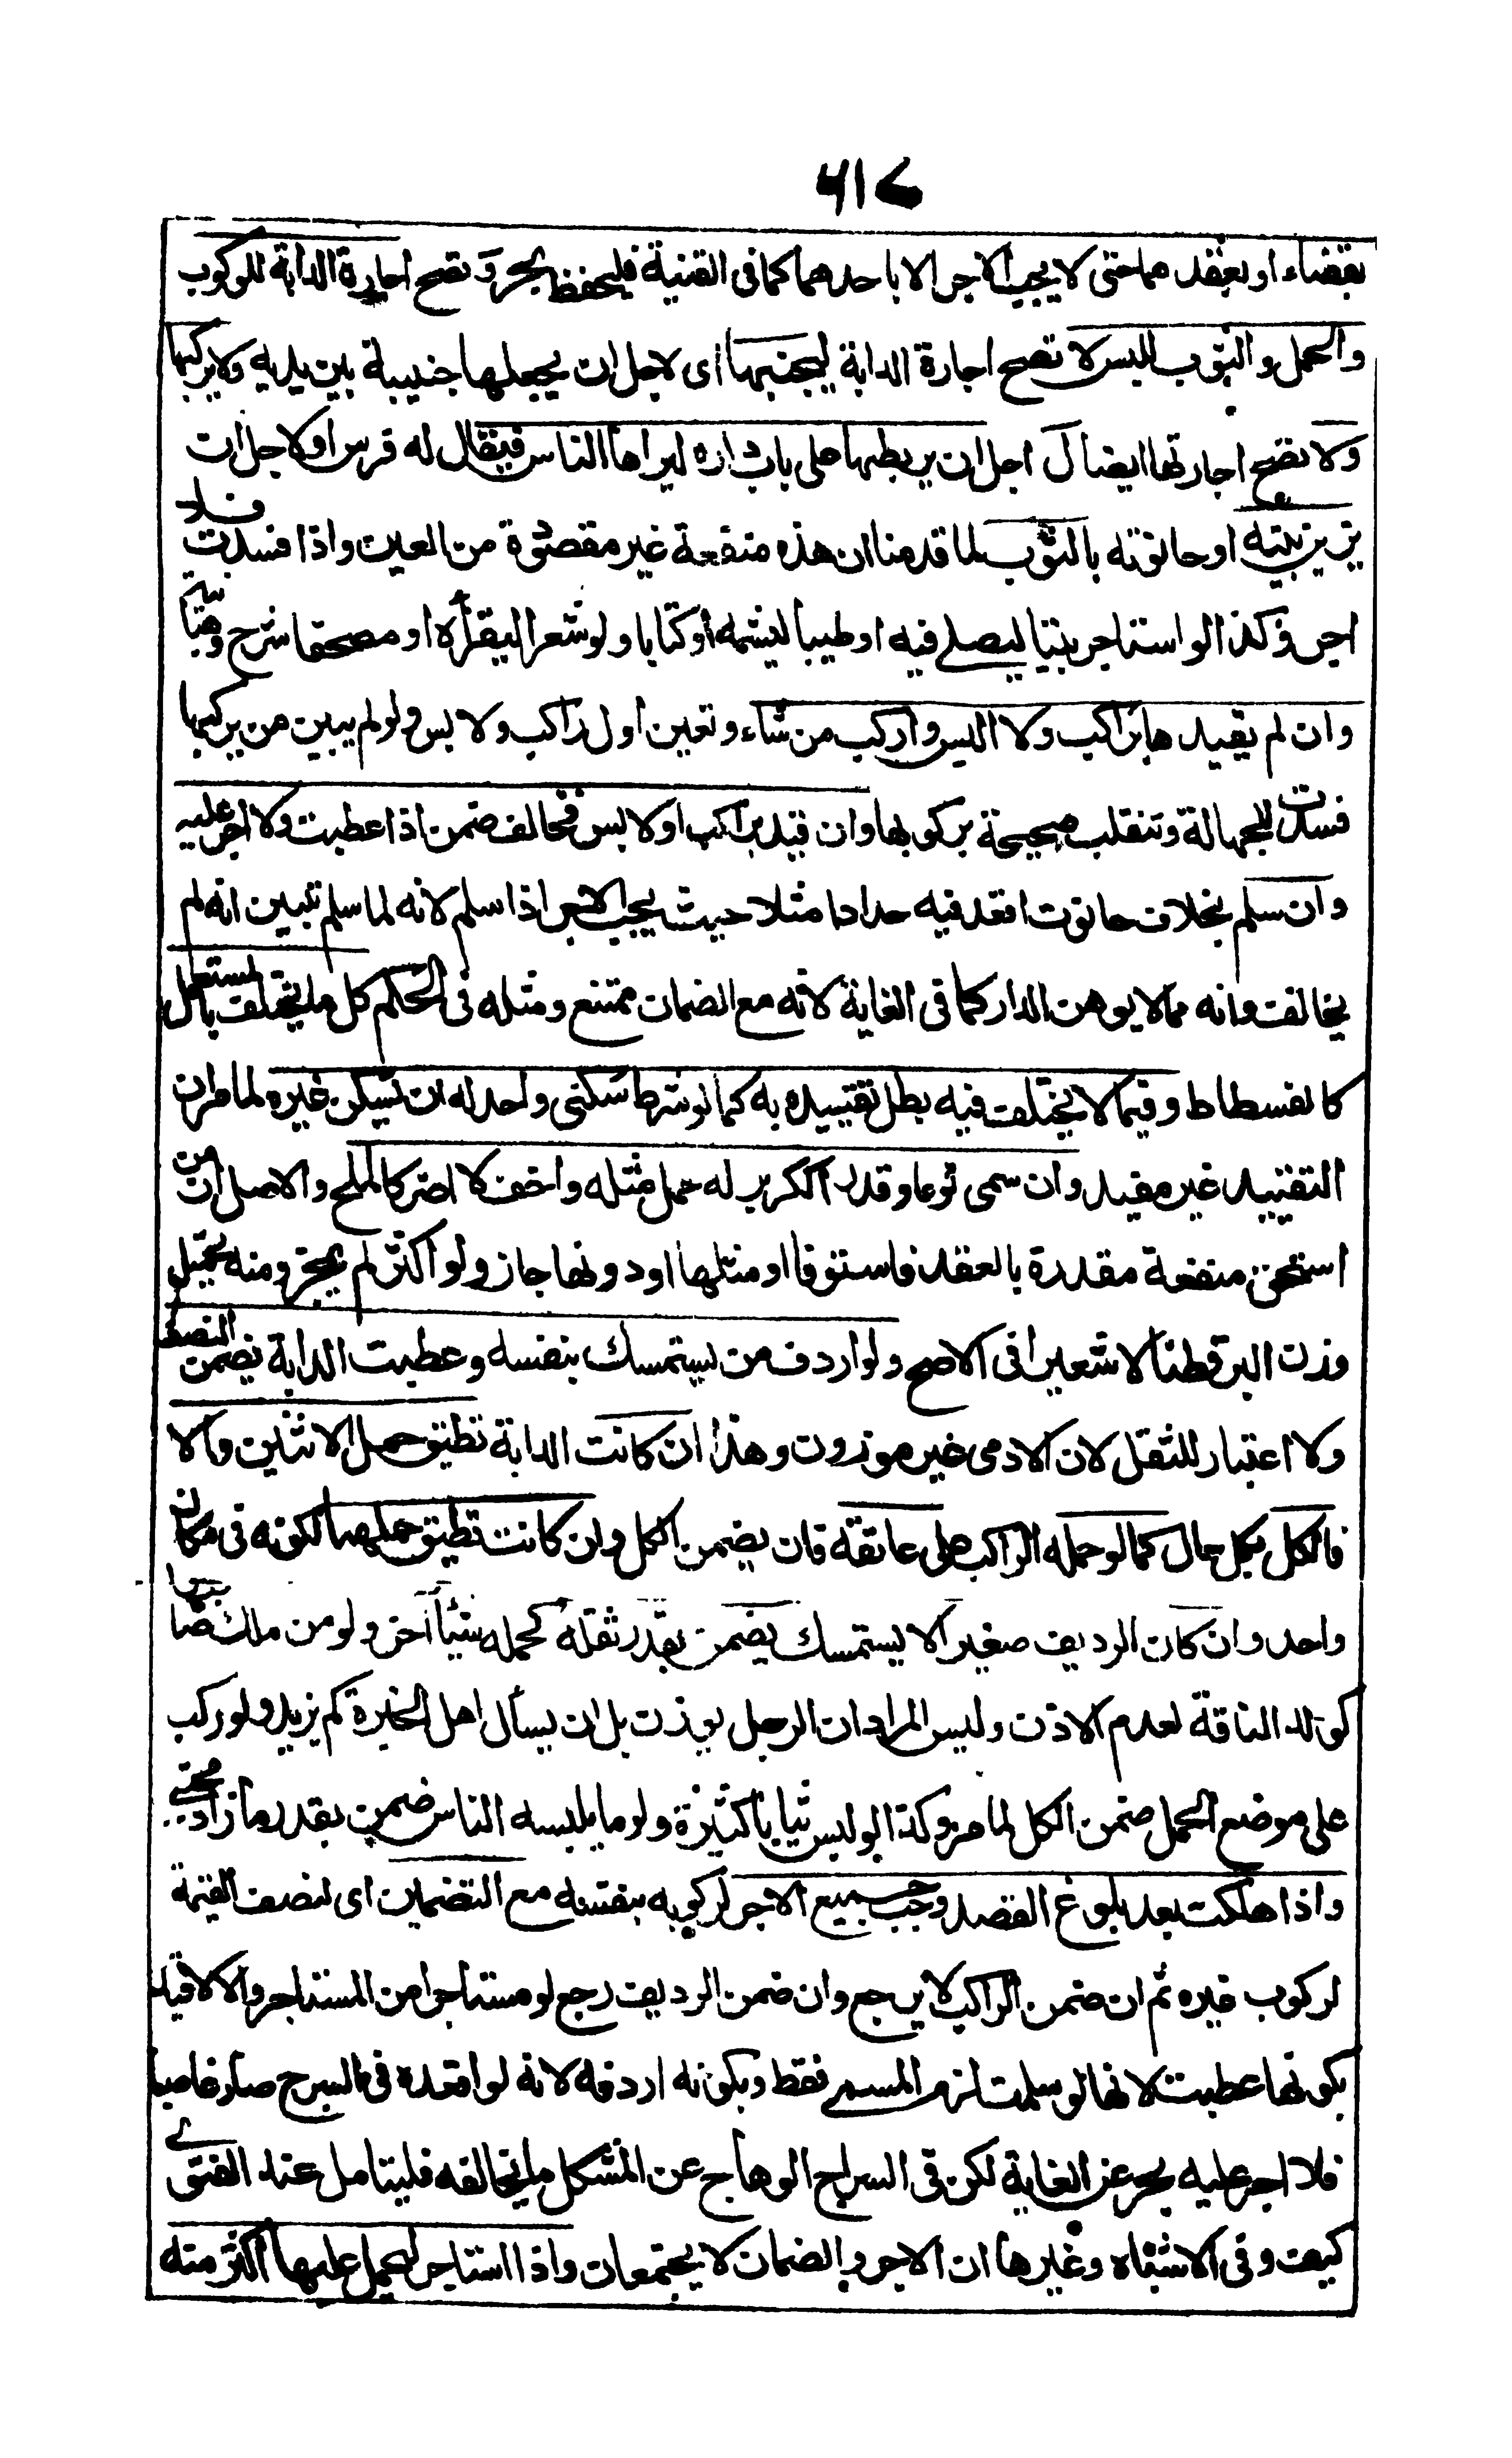 ٤١٧
بقضاء او بعقدهما حتى لا يجب الاجر الا باحدهما كما فى القنية فليحفظ بحر وتصح اجارة الدابة للركوب
والحمل والثوب للبس لا تصح اجارة الدابة ليجنبها اى لاجل ان يجعلها جنيبة بين يديه ولا يركبها
ولا تصح اجارتها ايضا لاجل ان يربطها على باب داره ليراها الناس فيقال له فرس او لاجل ان
يزين بيته او حانوته بالثوب لما قدمنا ان هذه منفعة غير مقصودة من العين واذا فسدت فلا
اجر وكذا لو استاجر بيتا ليصلى فيه او طيبا ليشمه او كتابا ولو شعرا ليقرأه او مصحفا شرح وهبانية
وان لم يقيدها براكب ولابس اركب والبس من شاء وتعين اول راكب ولابس ولو لم يبين من يركبها
فسدت للجهالة وتنقلب صحيحة بركوبها وان قيد براكب او لابس فخالف ضمن اذا عطبت ولا اجر عليه
وان سلم بخلاف حانوت اقعد فيه حدادا مثلا حيث يجب الاجر اذا سلم لانه لما سلم تبين انه لم
يخالف وانه مما لا يوهن الدار كما فى الغاية لانه مع الضمان ممتنع ومثله فى الحكم كل ما يختلف بالمستعمل
كالفسطاط وفيما لا يختلف فيه بطل تقييده به كما لو شرط سكنى واحد له ان يسكن غيره لما مر ان
التقييد غير مفيد وان سمى نوعا وقدرا ككر بر له حمل مثله واخف لا اضر كالملح والاصل ان من
استحق منفعة مقدرة بالعقد فاستوفاها او مثلها او دونها جاز ولو اكثر لم يجز ومنه تحميل
وزن البر قطنا لا شعيرا فى الاصح ولو اردف من يستمسك بنفسه وعطبت الدابة يضمن النصف
ولا اعتبار للثقل لان الادمى غير موزون وهذا ان كانت الدابة تطيق حمل الاثنين والا
فالكل بكل حال كما لو حمله الراكب على عاتقه فان يضمن الكل وان كانت تطيق حملهما لكونه فى مكان
واحد وان كان الرديف صغيرا لا يستمسك يضمن بقدر ثقله كحمله شيئا آخر ولو من ملك صاحبها
كولد الناقة لعدم الاذن وليس المراد ان الرجل يوزن بل ان يسأل اهل الخبرة كم يزيد ولو ركب
على موضع الحمل ضمن الكل لما مر وكذا لو لبس ثيابا كثيرة ولو ما يلبسه الناس ضمن بقدر ما زاد مجتبى
واذا هلكت بعد بلوغ القصد وجب جميع الاجر لركوبه بنفسه مع التضمين اى لنصف القيمة
لركوب غيره ثم ان ضمن الراكب لا يرجع وان ضمن الرديف رجع لو مستاجرا من المستاجر والا لا قيد
بكونها عطبت لانها لو سلمت لزم المسمى فقط وبكونه اردفه لانه لو اقعده فى السرج صار غاصبا
فلا اجر عليه بحر عن الغاية لكن فى السراج الوهاج عن المشكل ما يخالفه فليتامل عند الفتوى
كيف وفى الاشباه وغيرها ان الاجر والضمان لا يجتمعان واذا استاجر ليحمل عليها اكثر منه